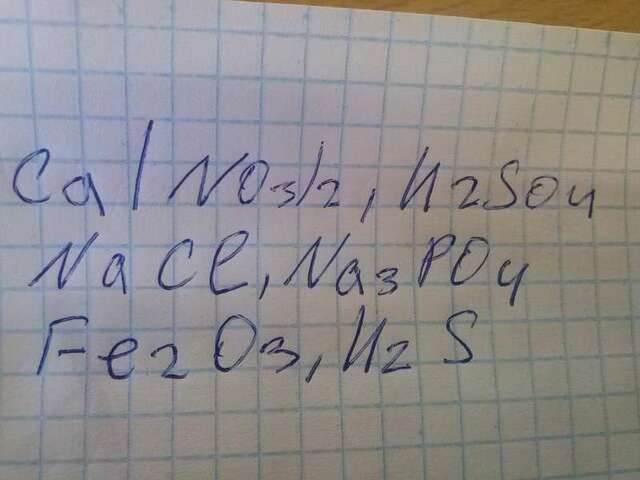 Ca(NO3)2, H2SO4
NaCl, Na3PO4
Fe2O3, H2S